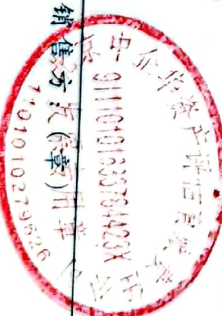 中企华资产评估有限责任公司
91110101633784423X
销售方：(章)
1101010279626